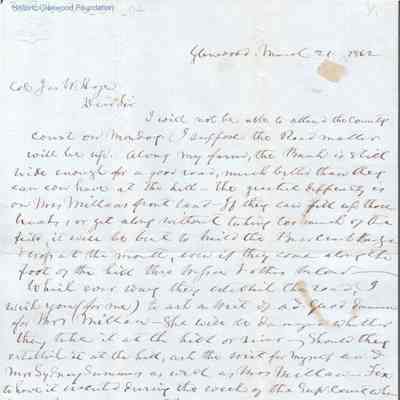 Historic Glenwood Foundation
Glenwood March 21 1862
Col Jas W. Hoge
Dear Sir
I will not be able to attend the County
Court on Monday (I suppose the Road matter
will be up. Along my farm, the Bank is still
wide enough for a good road, much better than they
can ever have at the hill – the greatest difficulty is
on Mrs Millians front land – If they can fill up those
breaks, or get along without taking too much of the
field, it will be best to build the
at the mouth, even if they come along the
foot of the hill thro
Which ever way they establish the road, I
wish you (for me) to ask a writ of ad quod damnum
for Mrs Millian – She will be damaged whether
they take it at the hill or river – Should they
establish it at the hill, ask the writ for myself and
Mrs Sydney Summers as well as Mrs Millian –
to have it executed during the week of the Supr Court when